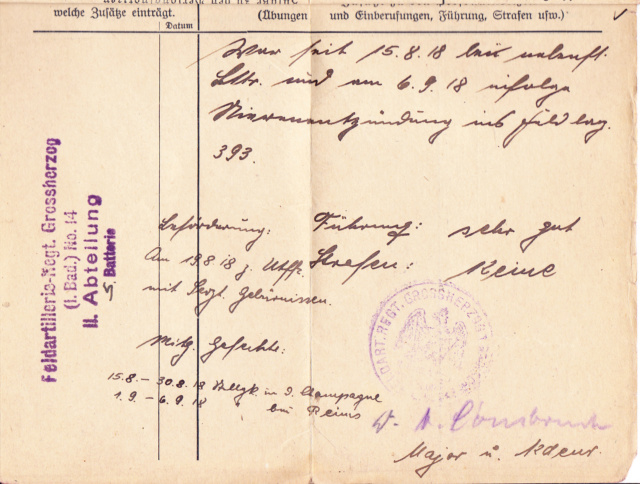 welche Zusätze einträgt.
Datum
(Übungen und Einberufungen, Führung, Strafen usw.)
War seit 15.8.18 bei
Bttr. und am 6.9.18 infolge
Nierenentzündung ins Feldlaz.
393.
Feldartillerie-Regt. Grossherzog
(I. Bad.) No. 14
II. Abteilung
5. Batterie
Beförderung:
Am 19.8.18 z. Utffz.
mit Sergt. Gebürnissen.
Führung: sehr gut
Strafen: Keine
Mitg. Gefechte:
15.8. – 30.8.18 Stllgk. in d. Champagne
1.9. – 6.9.18 bei Reims
FELDART. REGT. GROSSHERZOG
Major u. Kdeur.